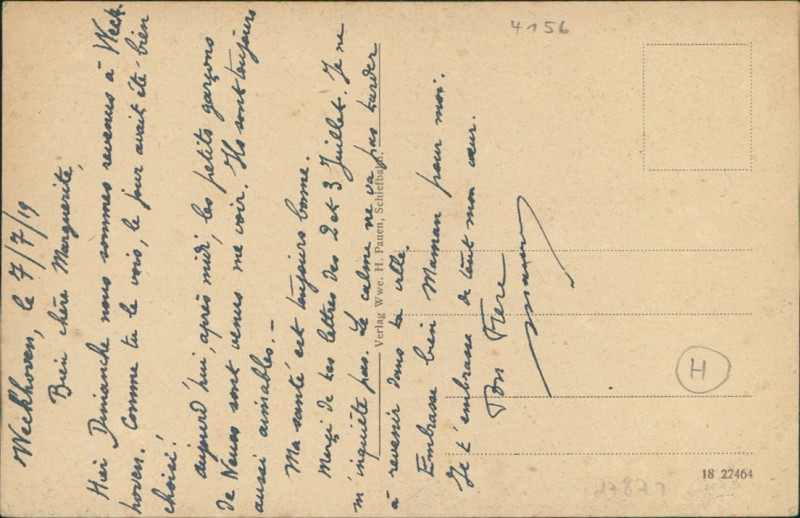 Weckhoven, le 7/7/19
Bien chère Marguerite,
Hier Dimanche nous sommes revenus à Weck-
hoven. Comme tu le vois, le jour avait été bien
choisi!
aujourd'hui, après midi, les petits garçons
de Neuss sont venus me voir. Ils sont toujours
aussi aimables. -
Ma santé est toujours bonne.
Merçi de tes lettres des 2 et 3 Juillet. Je ne
m'inquiète pas. Le calme ne va pas tarder
à revenir dans ta ville.
Embrasse bien Maman pour moi.
Je t'embrasse de tout mon cœur.
Ton Frere
Verlag Wwe. H. Pauen, Schlefbahn.
4156
H
18 22464